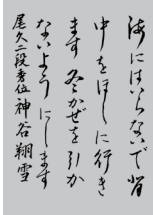 海にはいらないで背
中をほしに行き
ます 冬かぜを引か
ないようにします
尾久二段秀位 神谷翔雪